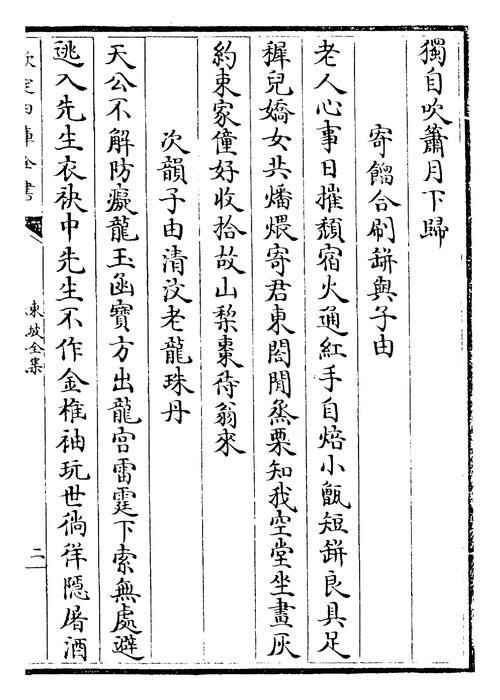 獨自吹簫月下歸
寄餾合刷缾與子由
老人心事日摧頹宿火通紅手自焙小甑短缾良具足
穉兒嬌女共燔煨寄君東閤閒烝栗知我空堂坐畫灰
約束家僮好收拾故山棃棗待翁來
次韻子由清汶老龍珠丹
天公不解防癡龍玉函寶方出龍宫雷霆下索無處避
逃入先生衣袂中先生不作金椎袖玩世徜徉隱屠酒
欽定四庫全書
東坡全集
二